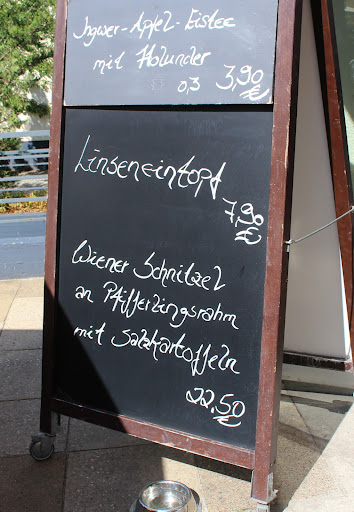 Ingwer-Apfel-Eistee
mit Holunder
0,3 3,90 €
Linseneintopf
7,90 €
Wiener Schnitzel
an Pfifferlingsrahm
mit Salzkartoffeln
22,50 €